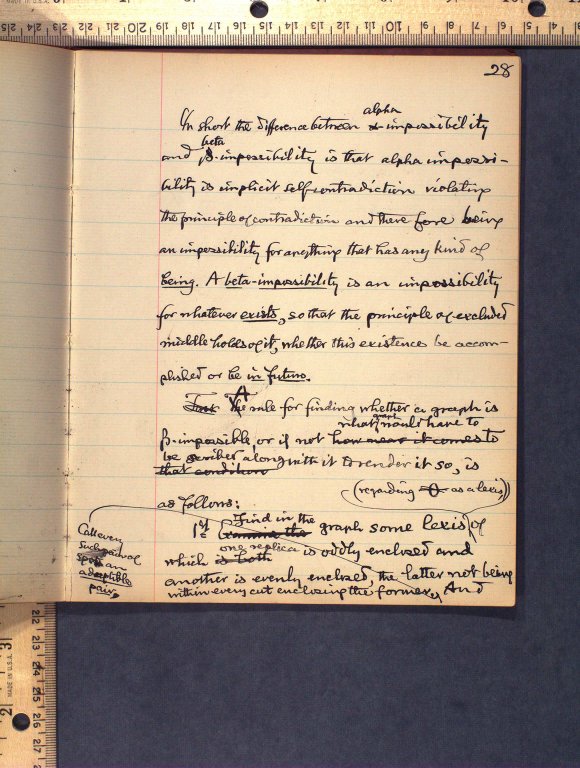 28
In short the difference between alpha impossibility
and beta β-impossibility is that alpha impossi-
bility is implicit self contradiction violating
the principle of contradiction and therefore being
an impossibility for anything that has any kind of
being. A beta-impossibility is an impossibility
for whatever exists, so that the principle of excluded
middle holds of it, whether this existence be accom-
plished or be in futuro.
A rule for finding whether a graph is
β-impossible, or if not what graph would have to
be scribed along with it to render it so, is
that condition
as follows: (regarding as a lexis)
1st Find in the graph some lexis, of
which one replica is oddly enclosed and
another is evenly enclosed, the latter not being
within every cut enclosing the former. And
Call every
such pair of
an
adaptible
pair.
MADE IN U.S.A.